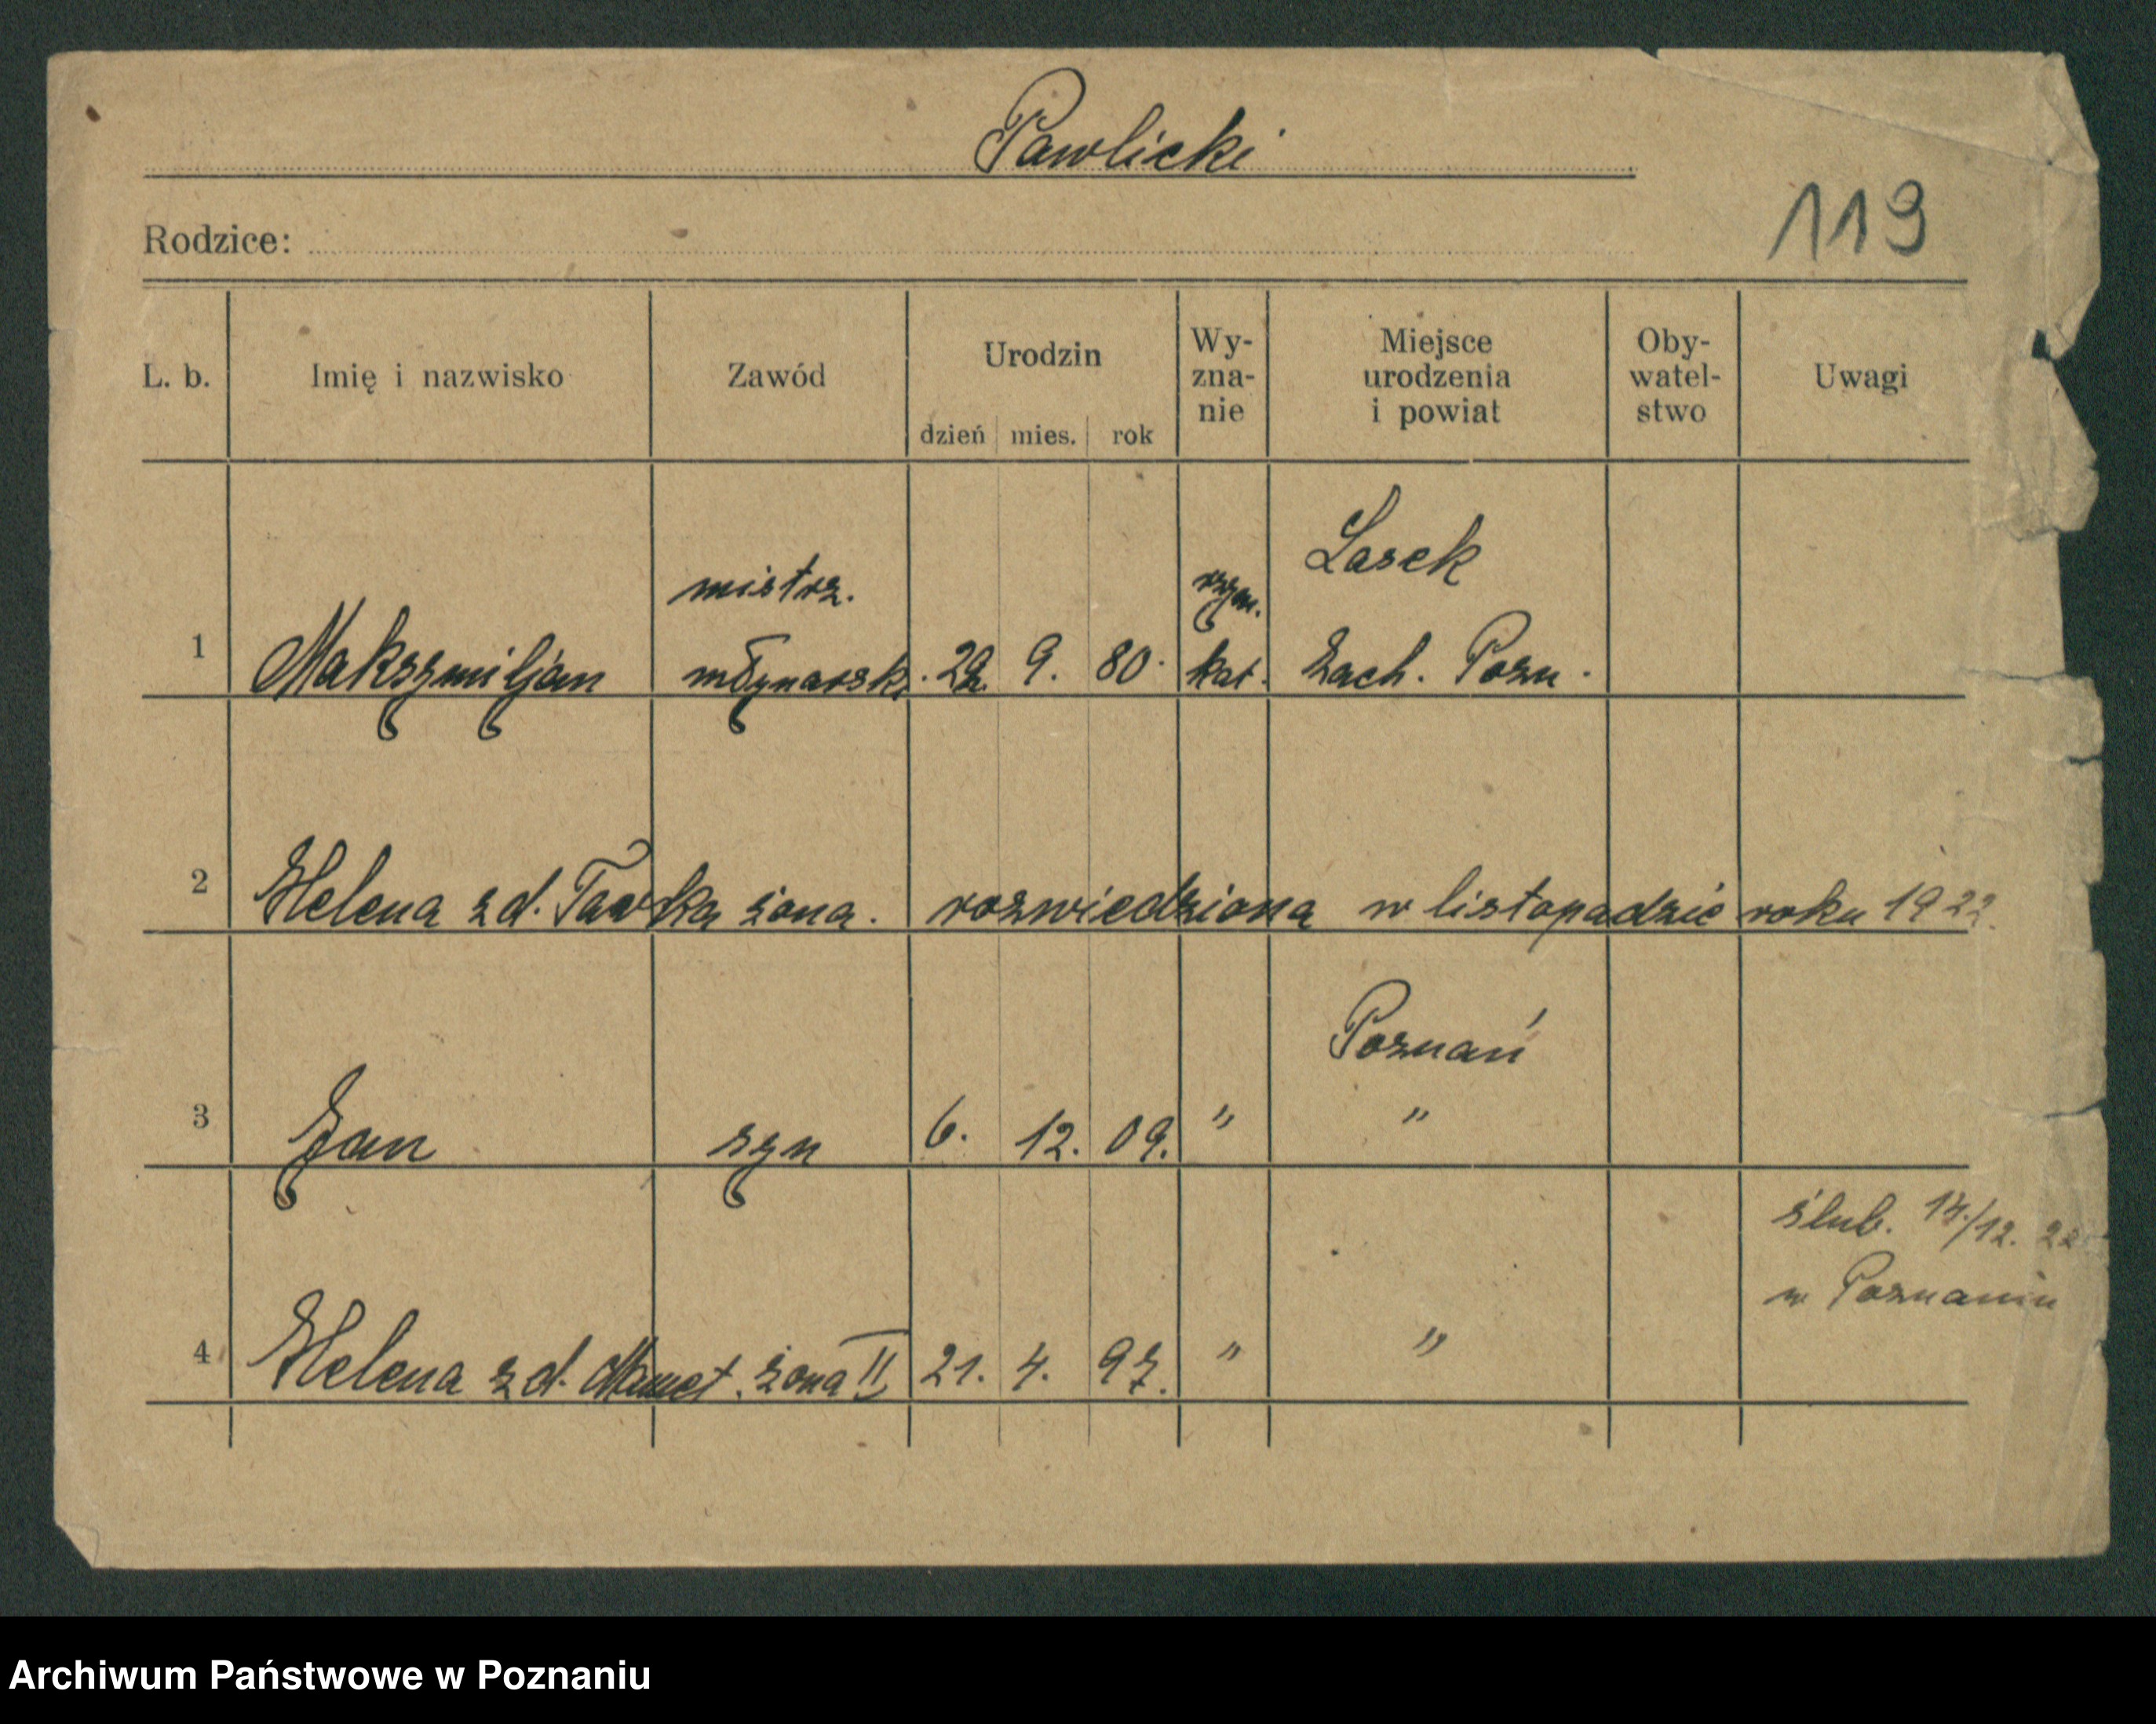 Pawlicki
Rodzice:
119
L. b. Imię i nazwisko Zawód Urodzin dzień mies. rok Wy-zna-nie Miejsce urodzenia i powiat Oby-watel-stwo Uwagi
mistrz. rzym. Lasek
1 Maksymiljan młynarski 9. 80. kat. Zach. Pozn.
2 Helena z d. żona. rozwiedziona w listopadzie roku 1922.
Poznań
3 Jan syn 6. 12. 09. " "
ślub. /12. 22
w Poznaniu
4 Helena z d. żona II 21. 4. 97. " "
Archiwum Państwowe w Poznaniu